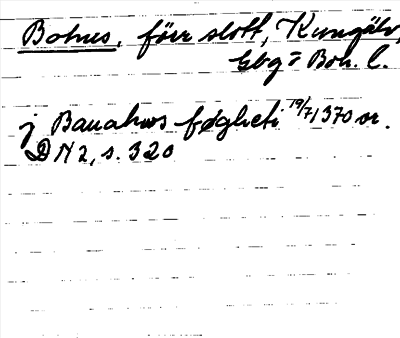 Bohus, förr slott, Kungälv,
Gbg o Boh. l.
j Banahws føgheti 19/7 1370 or.
DN 2, s. 320